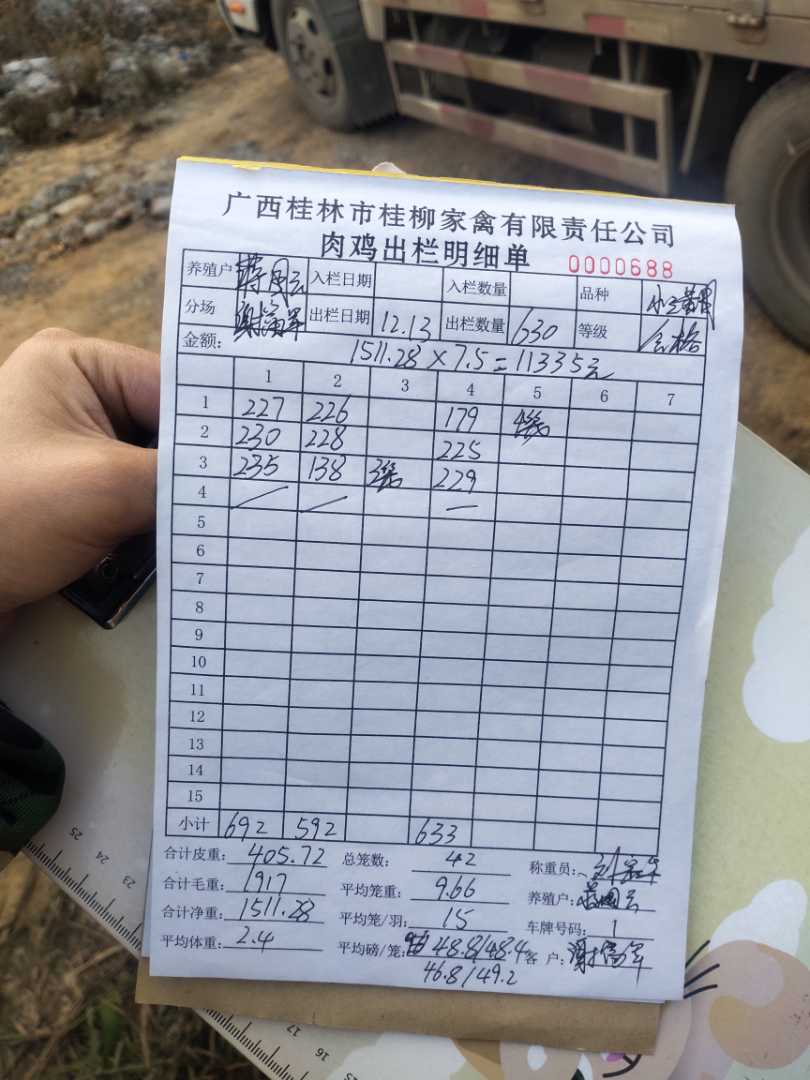 广西桂林市桂柳家禽有限责任公司
肉鸡出栏明细单 0000688
养殖户 入栏日期 入栏数量 品种
分场 出栏日期 12.13 出栏数量 630 等级 合格
金额: 1511.28×7.5=11335元
1 2 3 4 5 6 7
1 227 226 179
2 230 228 225
3 235 138 229
4
5
6
7
8
9
10
11
12
13
14
15
小计 692 592 633
合计皮重: 405.72 总笼数: 42 称重员:
合计毛重: 1917 平均笼重: 9.66 养殖户:
合计净重: 1511.28 平均笼/羽: 15 车牌号码: 1
平均体重: 2.4 平均磅/笼: 48.8/48.4 客户:
46.8/49.2
25
24
23
17
16
15